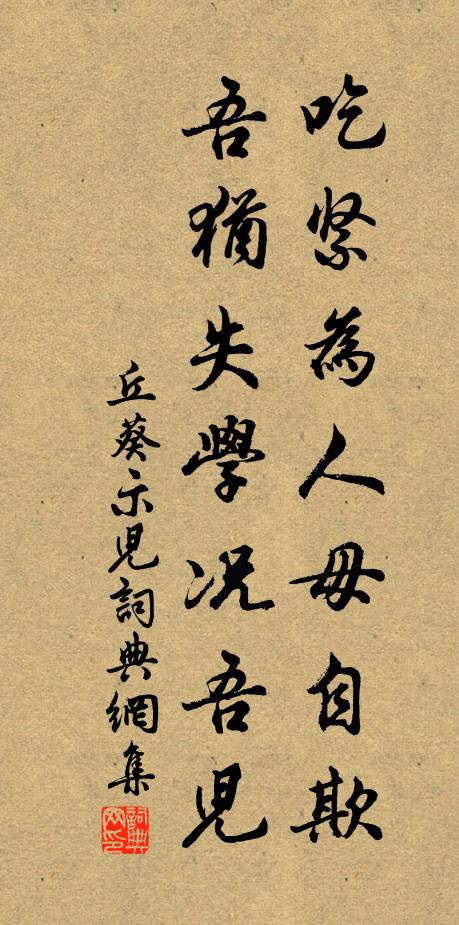 吃紧為人毋自欺
吾猶失學况吾兒
丘葵示兒詞典網集
詞典网印